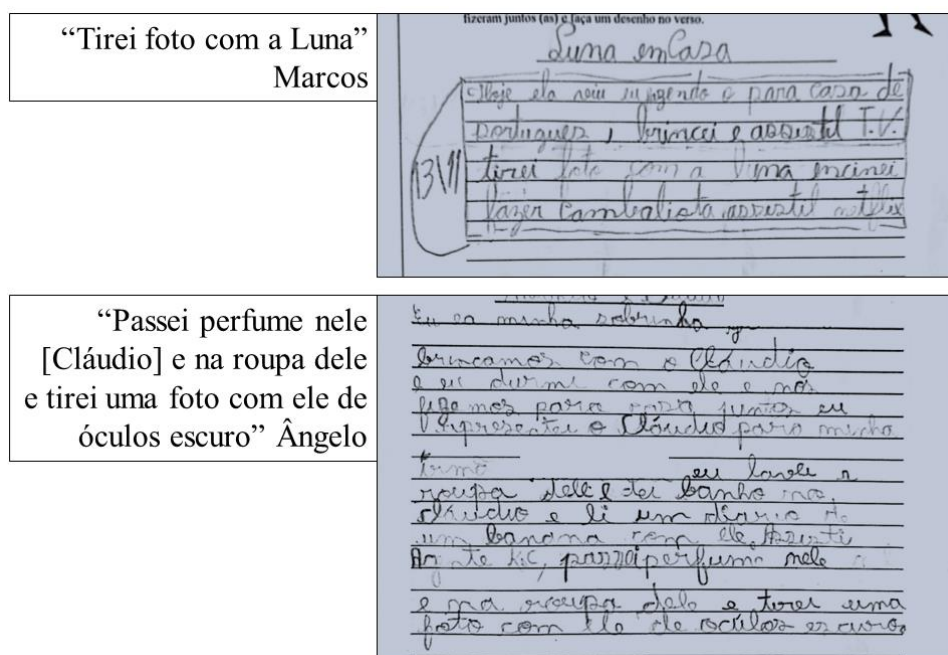 “Tirei foto com a Luna”
Marcos
fizeram juntos (as) e faça um desenho no verso.
Luna em Casa
Hoje ela veio para casa de
portugues, brincei e assistil T.V.
13\11 tirei foto com a luna encinei
fazer cambalista, assistil netflix
“Passei perfume nele
[Cláudio] e na roupa dele
e tirei uma foto com ele de
óculos escuro” Ângelo
Eu ea minha sobrinha
brincamos com o Cláudio
e eu durmi com ele e nós
fizemos para casa juntos eu
apresentei o Cláudio para minha
irmã eu lavei a
roupa dele e dei banho no
Cláudio e li um diário de
um banana com ele, Assisti
Agente K.C, passei perfume nele
e na roupa dele e tirei uma
foto com ele de oculos escuros